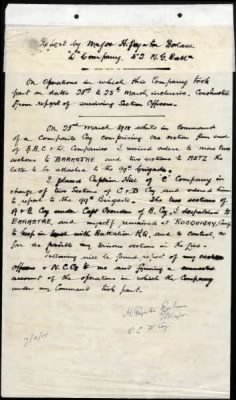 Report by Major H. Poynton
"D" Company, M.G. Batt
On Operations in which this Company took
part on dates 23rd to 28th March, inclusive. Constructed
from report of surviving Section Officers.
On 23rd March 1918 whilst in command
of a composite Coy comprising one section from each
of A.B.C & D. Companies I received orders to move two
sections to BARASTRE and two sections to METZ the
latter to be attached to the 99th Brigade.
I placed Captain of "C" Company in
charge of two Sections of C & D Coy and ordered him
to report to the 99th Brigade. The two sections of
A & B Coy under Capt of B. Coy, I despatched to
BARASTRE, and myself proceeded at ROCQUIGNY,
to keep in with Battalion H.Q. and to control, as
far as possible my various sections in the line.
Following will be found report of my
Officers & N.C.Os to me and forming a
account of the operations in which the Company
under my Command took part.
Major
O.C. "D" Coy